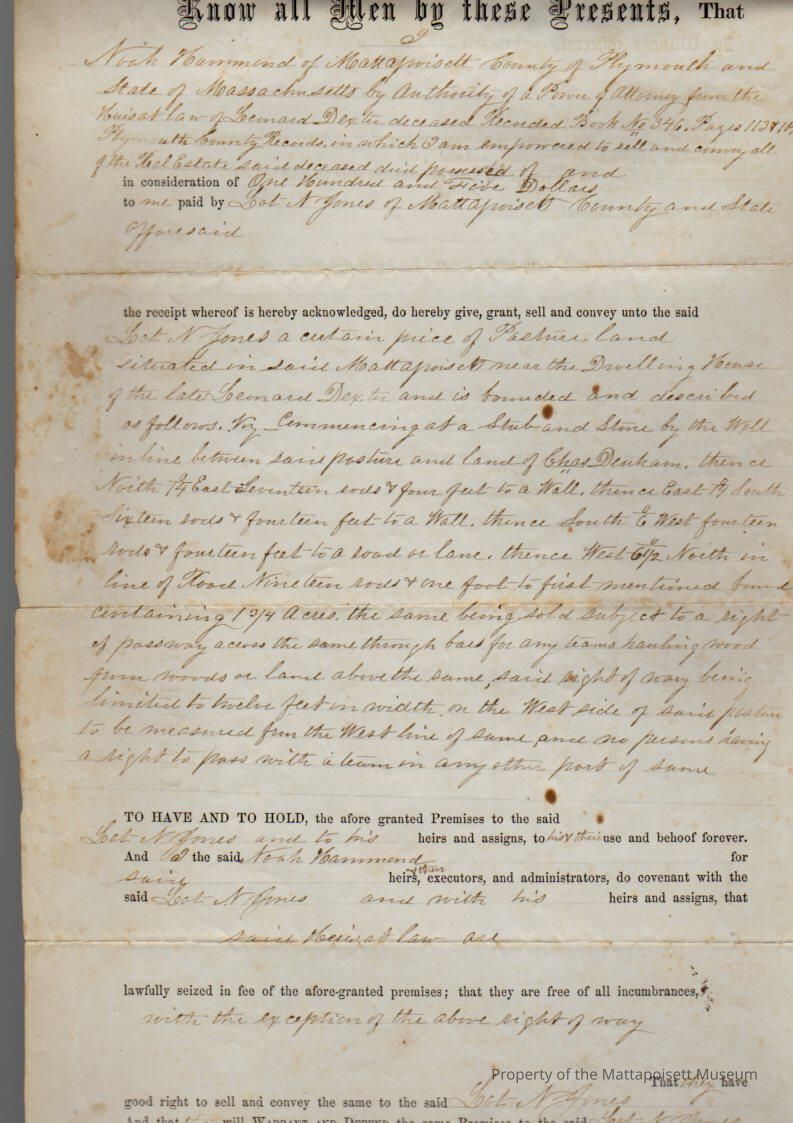 Know all Men by these Presents, That
I
Noah Hammond of Mattapoisett County of Plymouth and
State of Massachusetts by Authority of a Power of Attorney from the
Heirs at law of Leonard Dexter deceased Recorded Book No 346. Pages 113 & 114
Plymouth County Records, in which I am empowered to sell and convey all
of the Real Estate said deceased died possessed of and
in consideration of One Hundred and Five Dollars
to me paid by Lot N Jones of Mattapoisett County and State
afforesaid
the receipt whereof is hereby acknowledged, do hereby give, grant, sell and convey unto the said
Lot N Jones a certain piece of Pasture land
situated in said Mattapoisett near the Dwelling House
of the late Leonard Dexter and is bounded and described
as follows. Viz Commencing at a Stub and Stone by the Wall
in line between said pasture and land of Chas Denham. thence
North East Seventeen rods & four feet to a Wall. thence East South
Sixteen rods & fourteen feet to a Wall. thence South West fourteen
rods & fourteen feet to a road or lane. thence West North in
line of Road Nineteen rods & one foot to first mentioned bound
containing 1 3/4 Acres. the same being sold subject to a right
of passway across the same through bars for any teams hauling wood
from woods or land above the same, said right of way being
limited to twelve feet in width, on the West side of said pasture
to be measured from the West line of same, and no persons having
a right to pass with a team in any other part of same
TO HAVE AND TO HOLD, the afore granted Premises to the said
Lot N Jones and to his heirs and assigns, to his & their use and behoof forever.
And I the said Noah Hammond for
said heirs, & their executors, and administrators, do covenant with the
said Lot N Jones and with his heirs and assigns, that
said Heirs at law are
lawfully seized in fee of the afore-granted premises; that they are free of all incumbrances,
with the exception of the above right of way
Property of the Mattapoisett Museum
That they have
good right to sell and convey the same to the said Lot N Jones
And that will WARRANT AND DEFEND the same Premises to the said Lot N Jones